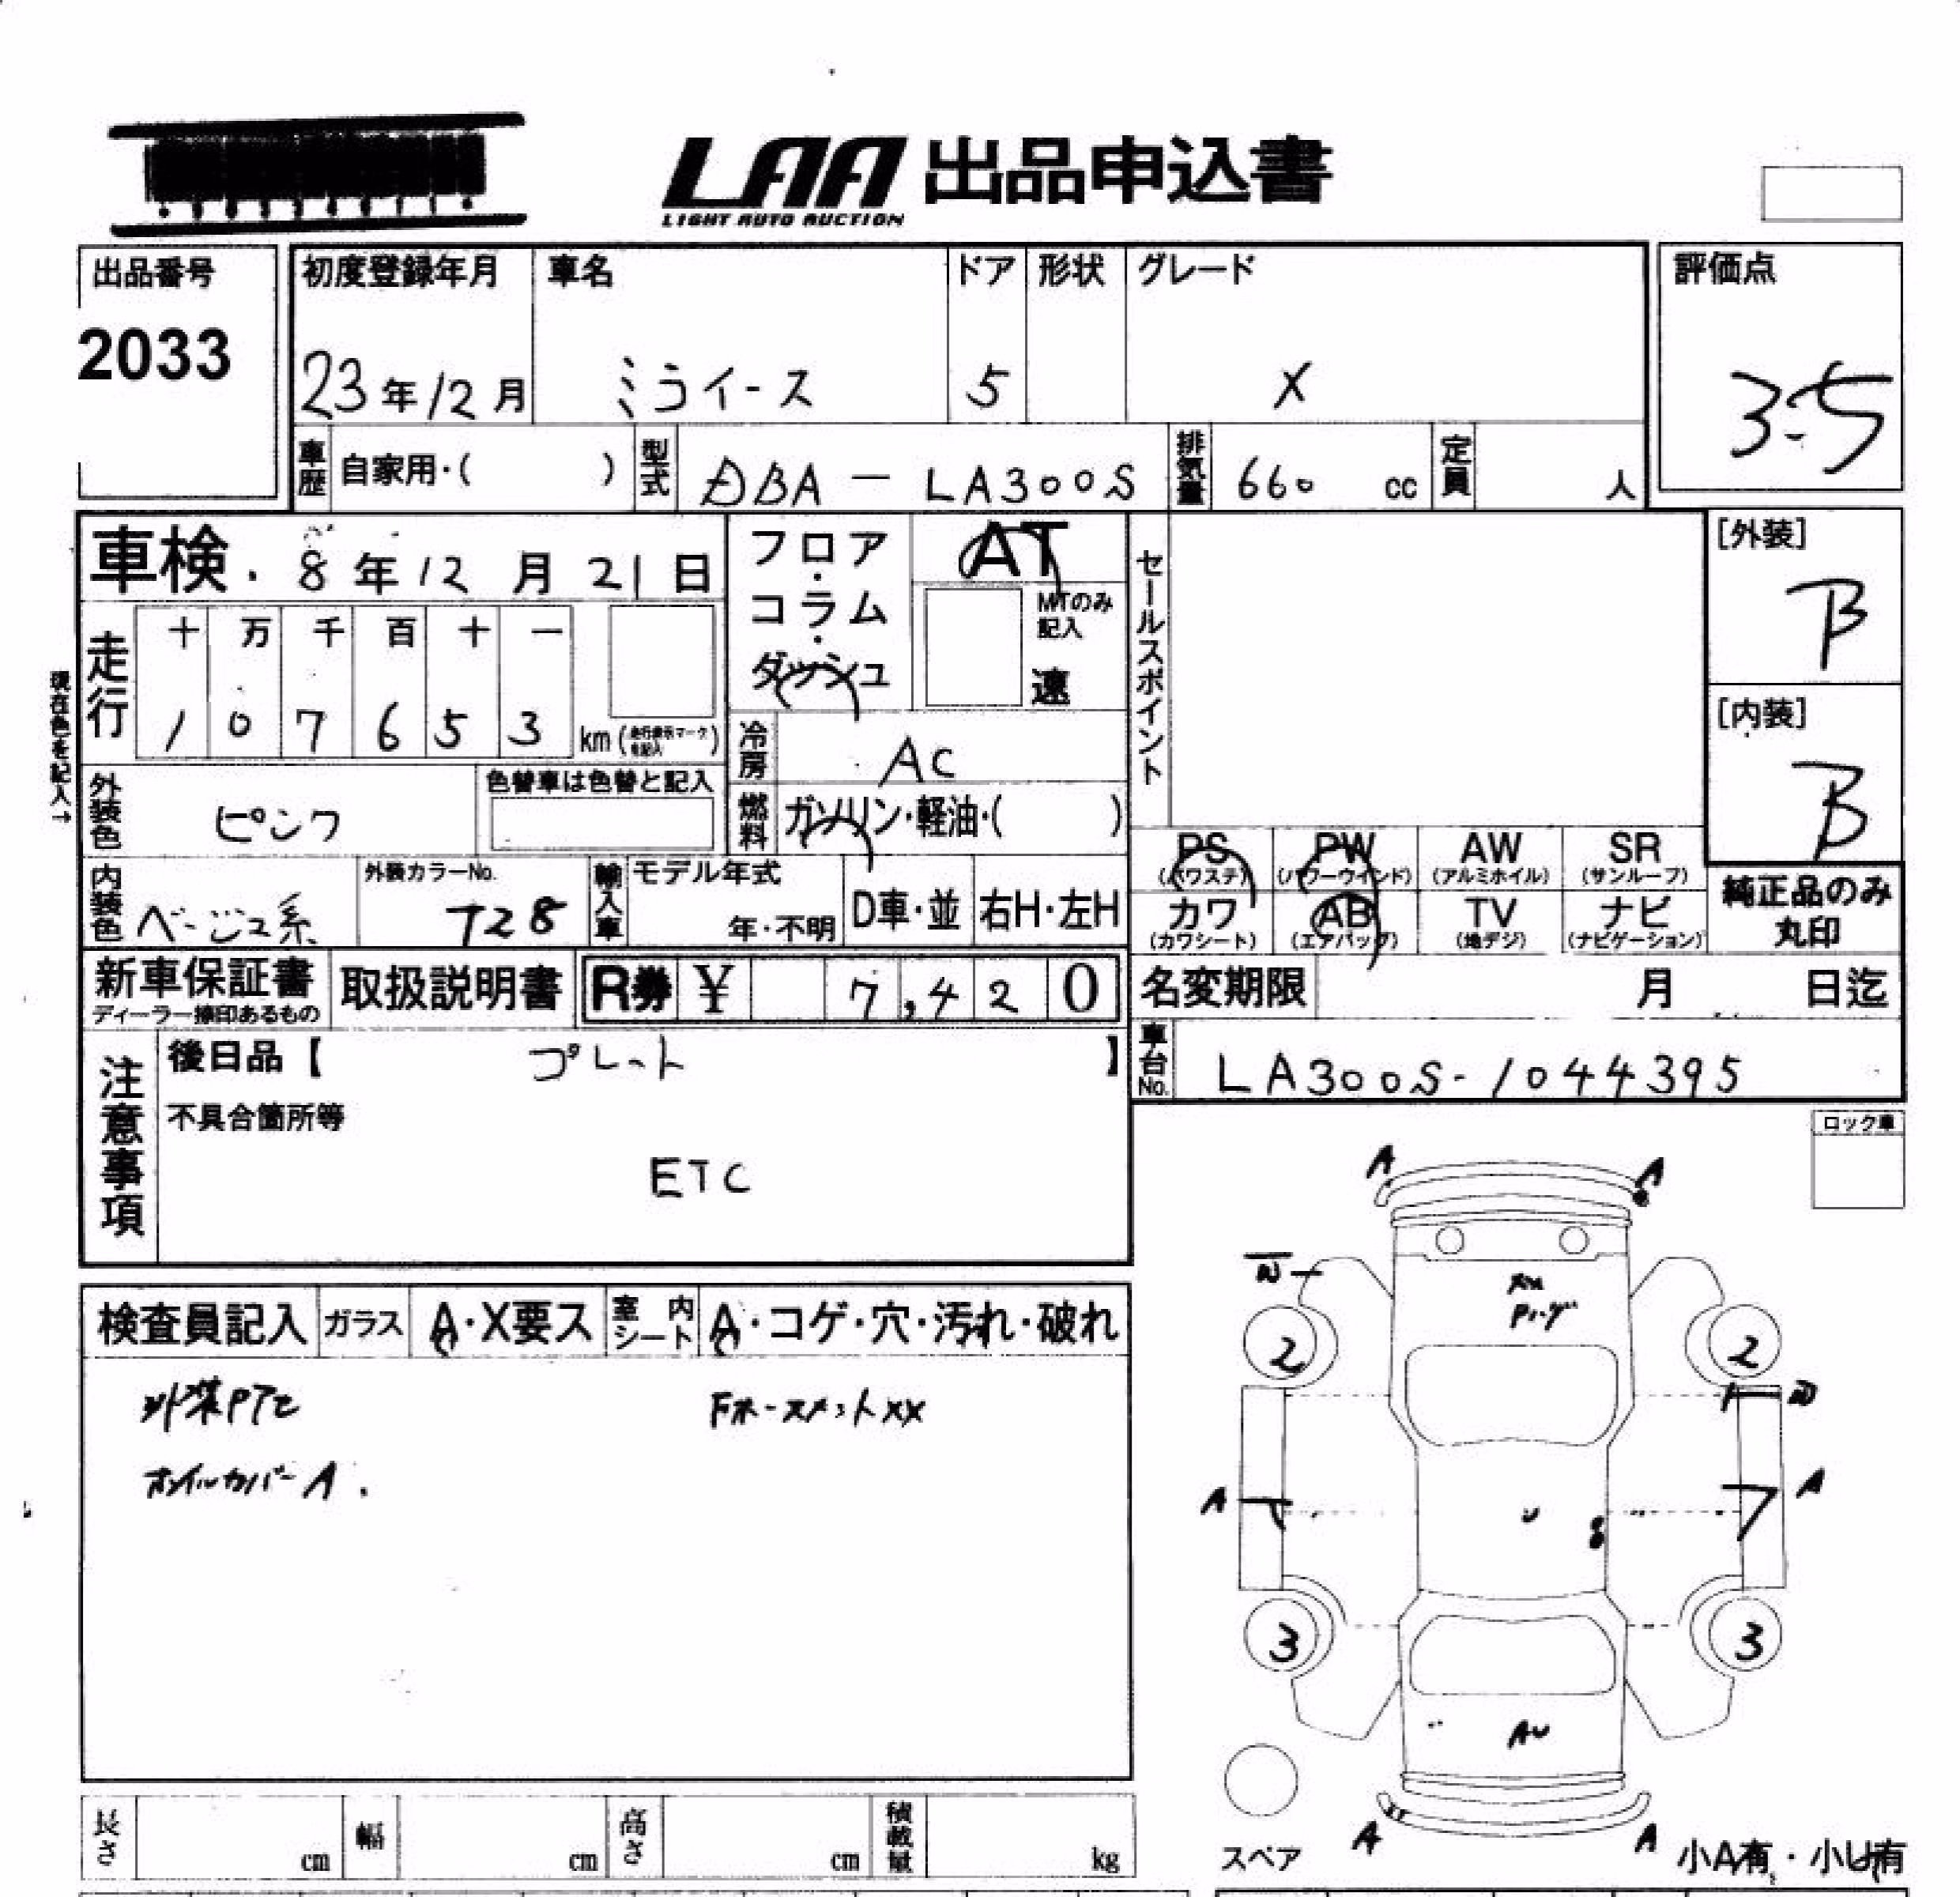 LAA 出品申込書
LIGHT AUTO AUCTION
出品番号
2033
初度登録年月 車名 ドア 形状 グレード
23年12月 ミライース 5 X
評価点
3.5
車歴 自家用・( ) 型式 DBA - LA300S 排気量 660 cc 定員 人
車検 8年12月21日
フロア・コラム・ダッシュ
AT
MTのみ記入
速
セールスポイント
[外装]
B
[内装]
B
現在色を記入→
走行 十 万 千 百 十 一
1 0 7 6 5 3 km (走行表示マークを記入)
冷房 AC
燃料 ガソリン・軽油・( )
外装色 ピンク 色替車は色替と記入
内装色 ベージュ系 外装カラーNo. T28
輸入車 モデル年式 年・不明 D車・並 右H・左H
PS (パワステ) PW (パワーウインド) AW (アルミホイル) SR (サンルーフ)
カワ (カワシート) AB (エアバッグ) TV (地デジ) ナビ (ナビゲーション)
純正品のみ丸印
新車保証書 ディーラー捺印あるもの 取扱説明書 R券 ¥ 7,420
名変期限 月 日迄
車台No. LA300S-1044395
注意事項
後日品【 プレート 】
不具合箇所等
ETC
ロック車
検査員記入 ガラス A・X要ス 室内シート A・コゲ・穴・汚れ・破れ
外装PTセ Fホースメントxx
ホイルカバーA.
A A
2 2
A A
U
3 3
AU
A A
スペア
小A有・小U有
長さ cm 幅 cm 高さ cm 積載量 kg